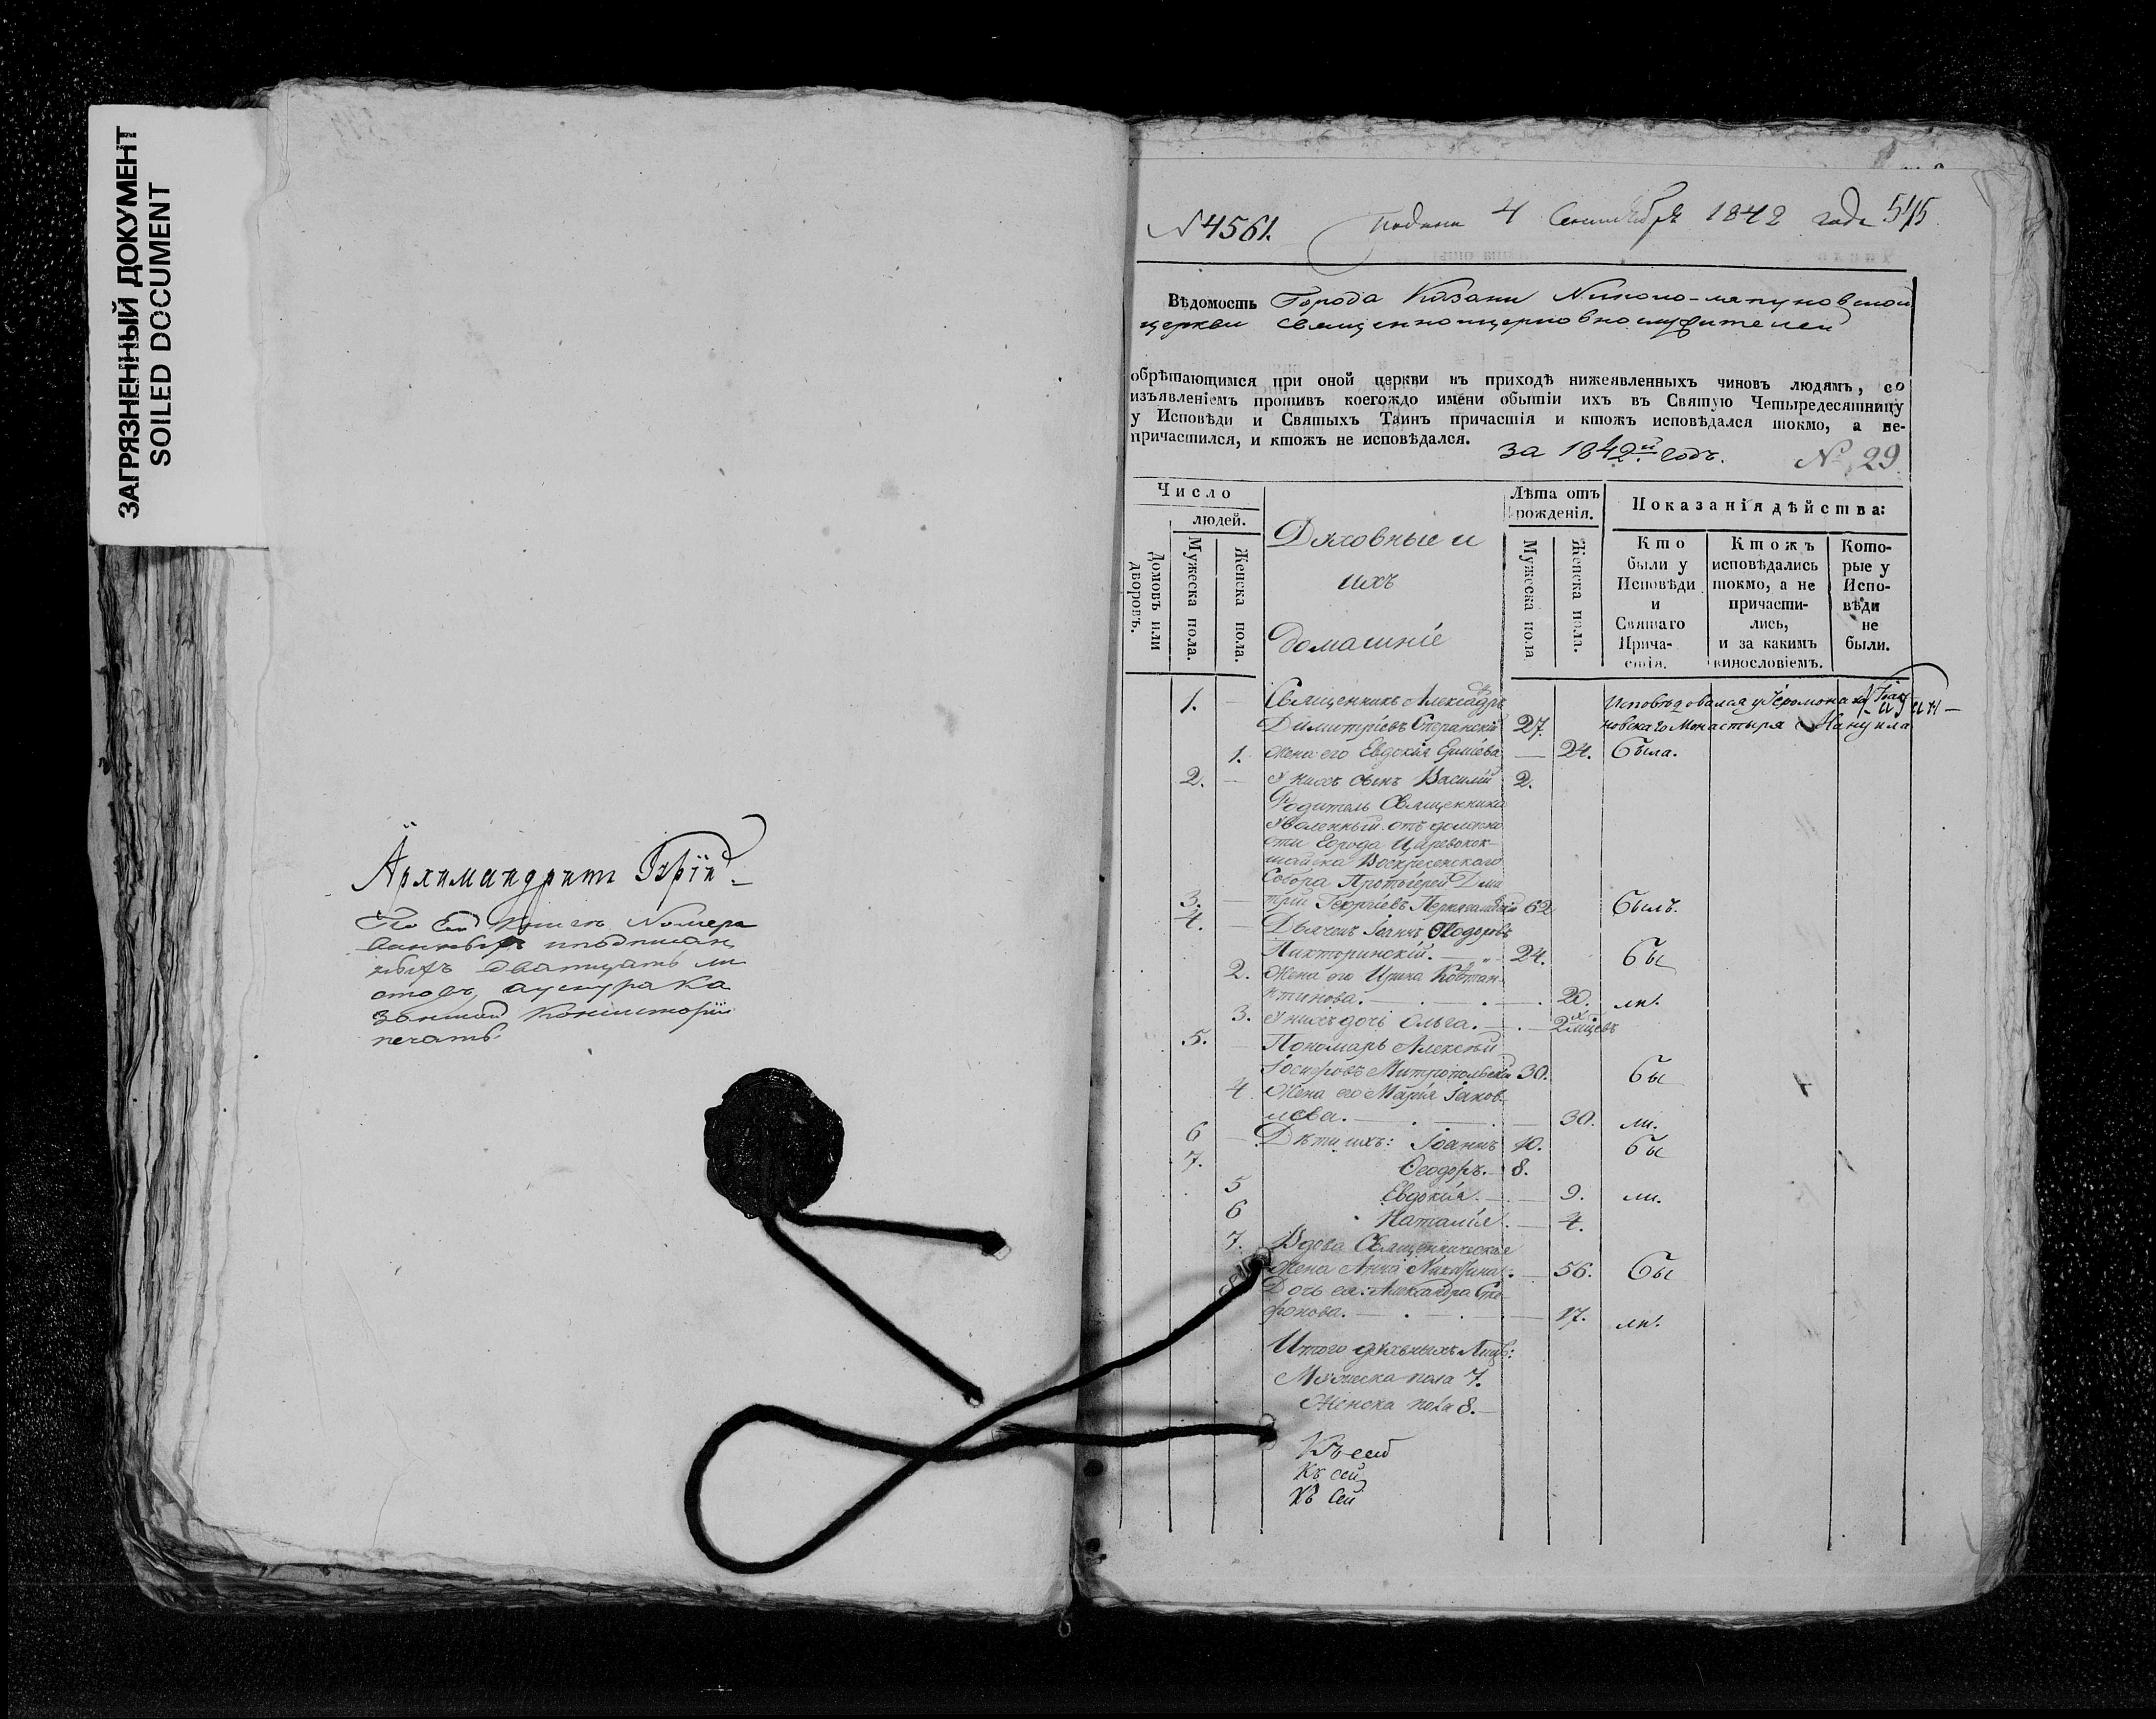 ЗАГРЯЗНЕННЫЙ ДОКУМЕНТ
SOILED DOCUMENT
Архимандритъ
листовъ,
Консисторіи
печать.
№ 4561.
Подана 4 Сентября 1842 года 515
Вѣдомость Города Казани Николо-ляпуновской
церкви священноцерковнослужителей
обрѣтающимся при оной церкви въ приходѣ нижеявленныхъ чиновъ людямъ, со
изъявленіемъ противъ коегождо имени обытіи ихъ въ Святую Четыредесятницу
у Исповѣди и Святыхъ Таинъ причастія и ктожъ исповѣдался токмо, а не-
причастился, и ктожъ не исповѣдался.
за 1842й годъ. № 29
Число
людей.
Домовъ или дворовъ.
Мужеска пола.
Женска пола.
Духовные и
ихъ
домашніе
Лѣта отъ
рожденія.
Мужеска пола
Женска пола.
Показанія дѣйства:
Кто
были у
Исповѣди
и
Святаго
Прича-
стія.
Ктожъ
исповѣдались
токмо, а не
причасти-
лись,
и за какимъ
винословіемъ.
Кото-
рые у
Испо-
вѣди
не
были.
1. Священникъ Александръ Исповѣдовался у Іеромонаха
Димитріевъ Сперанскій 27. Монастыря
1. Жена его Евдокія 24. Была.
2. У нихъ сынъ Василій 2.
Родитель Священника
Уволенный отъ должно
сти Города Царевокок-
шайска Воскресенскаго
Собора Протоіерей Дми
3. трій Георгіевъ 62 Былъ.
4. Дьячекъ Іоаннъ Ѳеодоровъ
24. Бы
2. Жена его Ирина Констан-
тинова. 20. ли.
3. У нихъ дочь Ольга. 2 мѣсцевъ
5. Пономарь Алексѣй
Іосифовъ Митропольскій 30. Бы
4 Жена его Марія Іаков-
лева. 30. ли.
6 Дѣти ихъ: Іоаннъ 10. Бы
7. Ѳеодоръ. 8.
5 Евдокія. 9. ли.
6 Наталія. 4.
7. Вдова Священническая
Жена Анна 56. Бы
8 Дочь ея: Александра
17. ли.
Итого духовныхъ Лицъ:
Мужеска пола 7.
Женска пола 8.
Къ сей
Къ сей
Къ сей